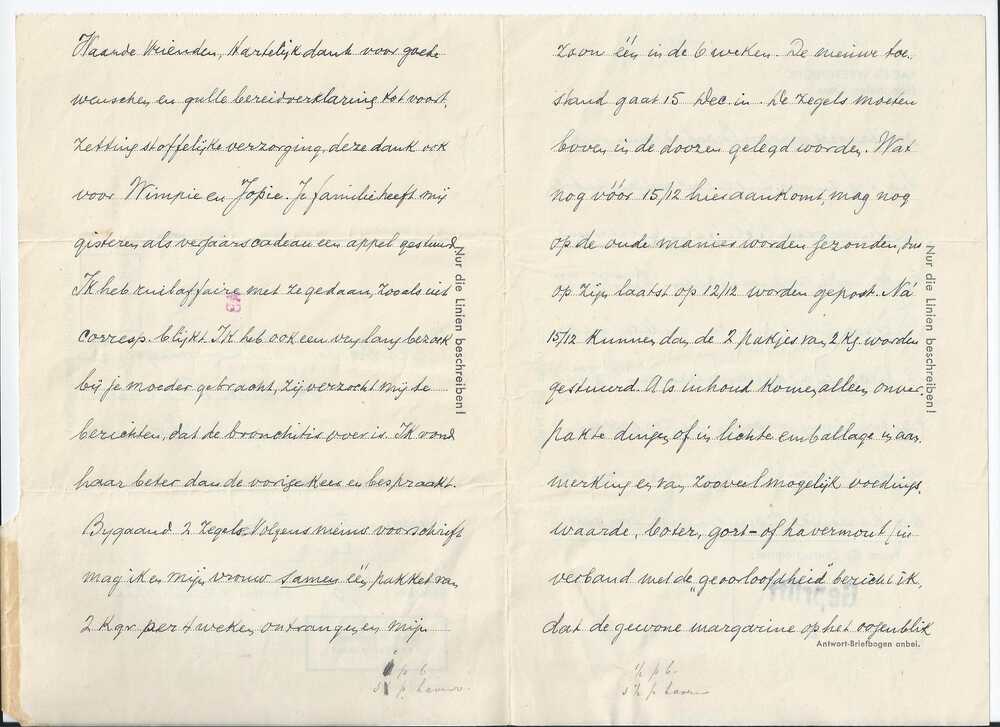 Waarde Vrienden, Hartelijk dank voor goede
wenschen en gulle bereidverklaring tot voort-
zetting stoffelijke verzorging, deze dank ook
voor Wimpie en Jopie. Je familie heeft mij
gisteren als verjaarscadeau een appel gestuurd
Ik heb ruilaffaire met ze gedaan, zooals uit
corresp. blijkt. Ik heb ook een vrij lang bezoek
bij je moeder gebracht, zij verzocht mij te
berichten, dat de bronchitis over is. Ik vond
haar beter dan de vorige keer en bespraakt.
Bygaand 2 zegels. Volgens nieuw voorschrift
mag ik en mijn vrouw samen één pakket van
2 Kgr per 4 weken ontvangen en mijn
Nur die Linien beschreiben!
p. b.
p. haver
zoon één in de 6 weken. De nieuwe toe-
stand gaat 15 Dec. in. De zegels moeten
boven in de doozen gelegd worden. Wat
nog vóór 15/12 hier aankomt, mag nog
op de oude manier worden gezonden, dus
op zijn laatst op 12/12 worden gepost. Ná
15/12 kunnen dan de 2 pakjes van 2 Kg. worden
gestuurd. Als inhoud komen alleen onver-
pakte dingen of in lichte emballage in aan-
merking en van zooveel mogelijk voedings-
waarde, boter, gort- of havermout (in
verband met de "geoorloofdheid" bericht ik,
dat de gewone margarine op het oogenblik
Nur die Linien beschreiben!
Antwort-Briefbogen anbei.
½ p b.
p haver